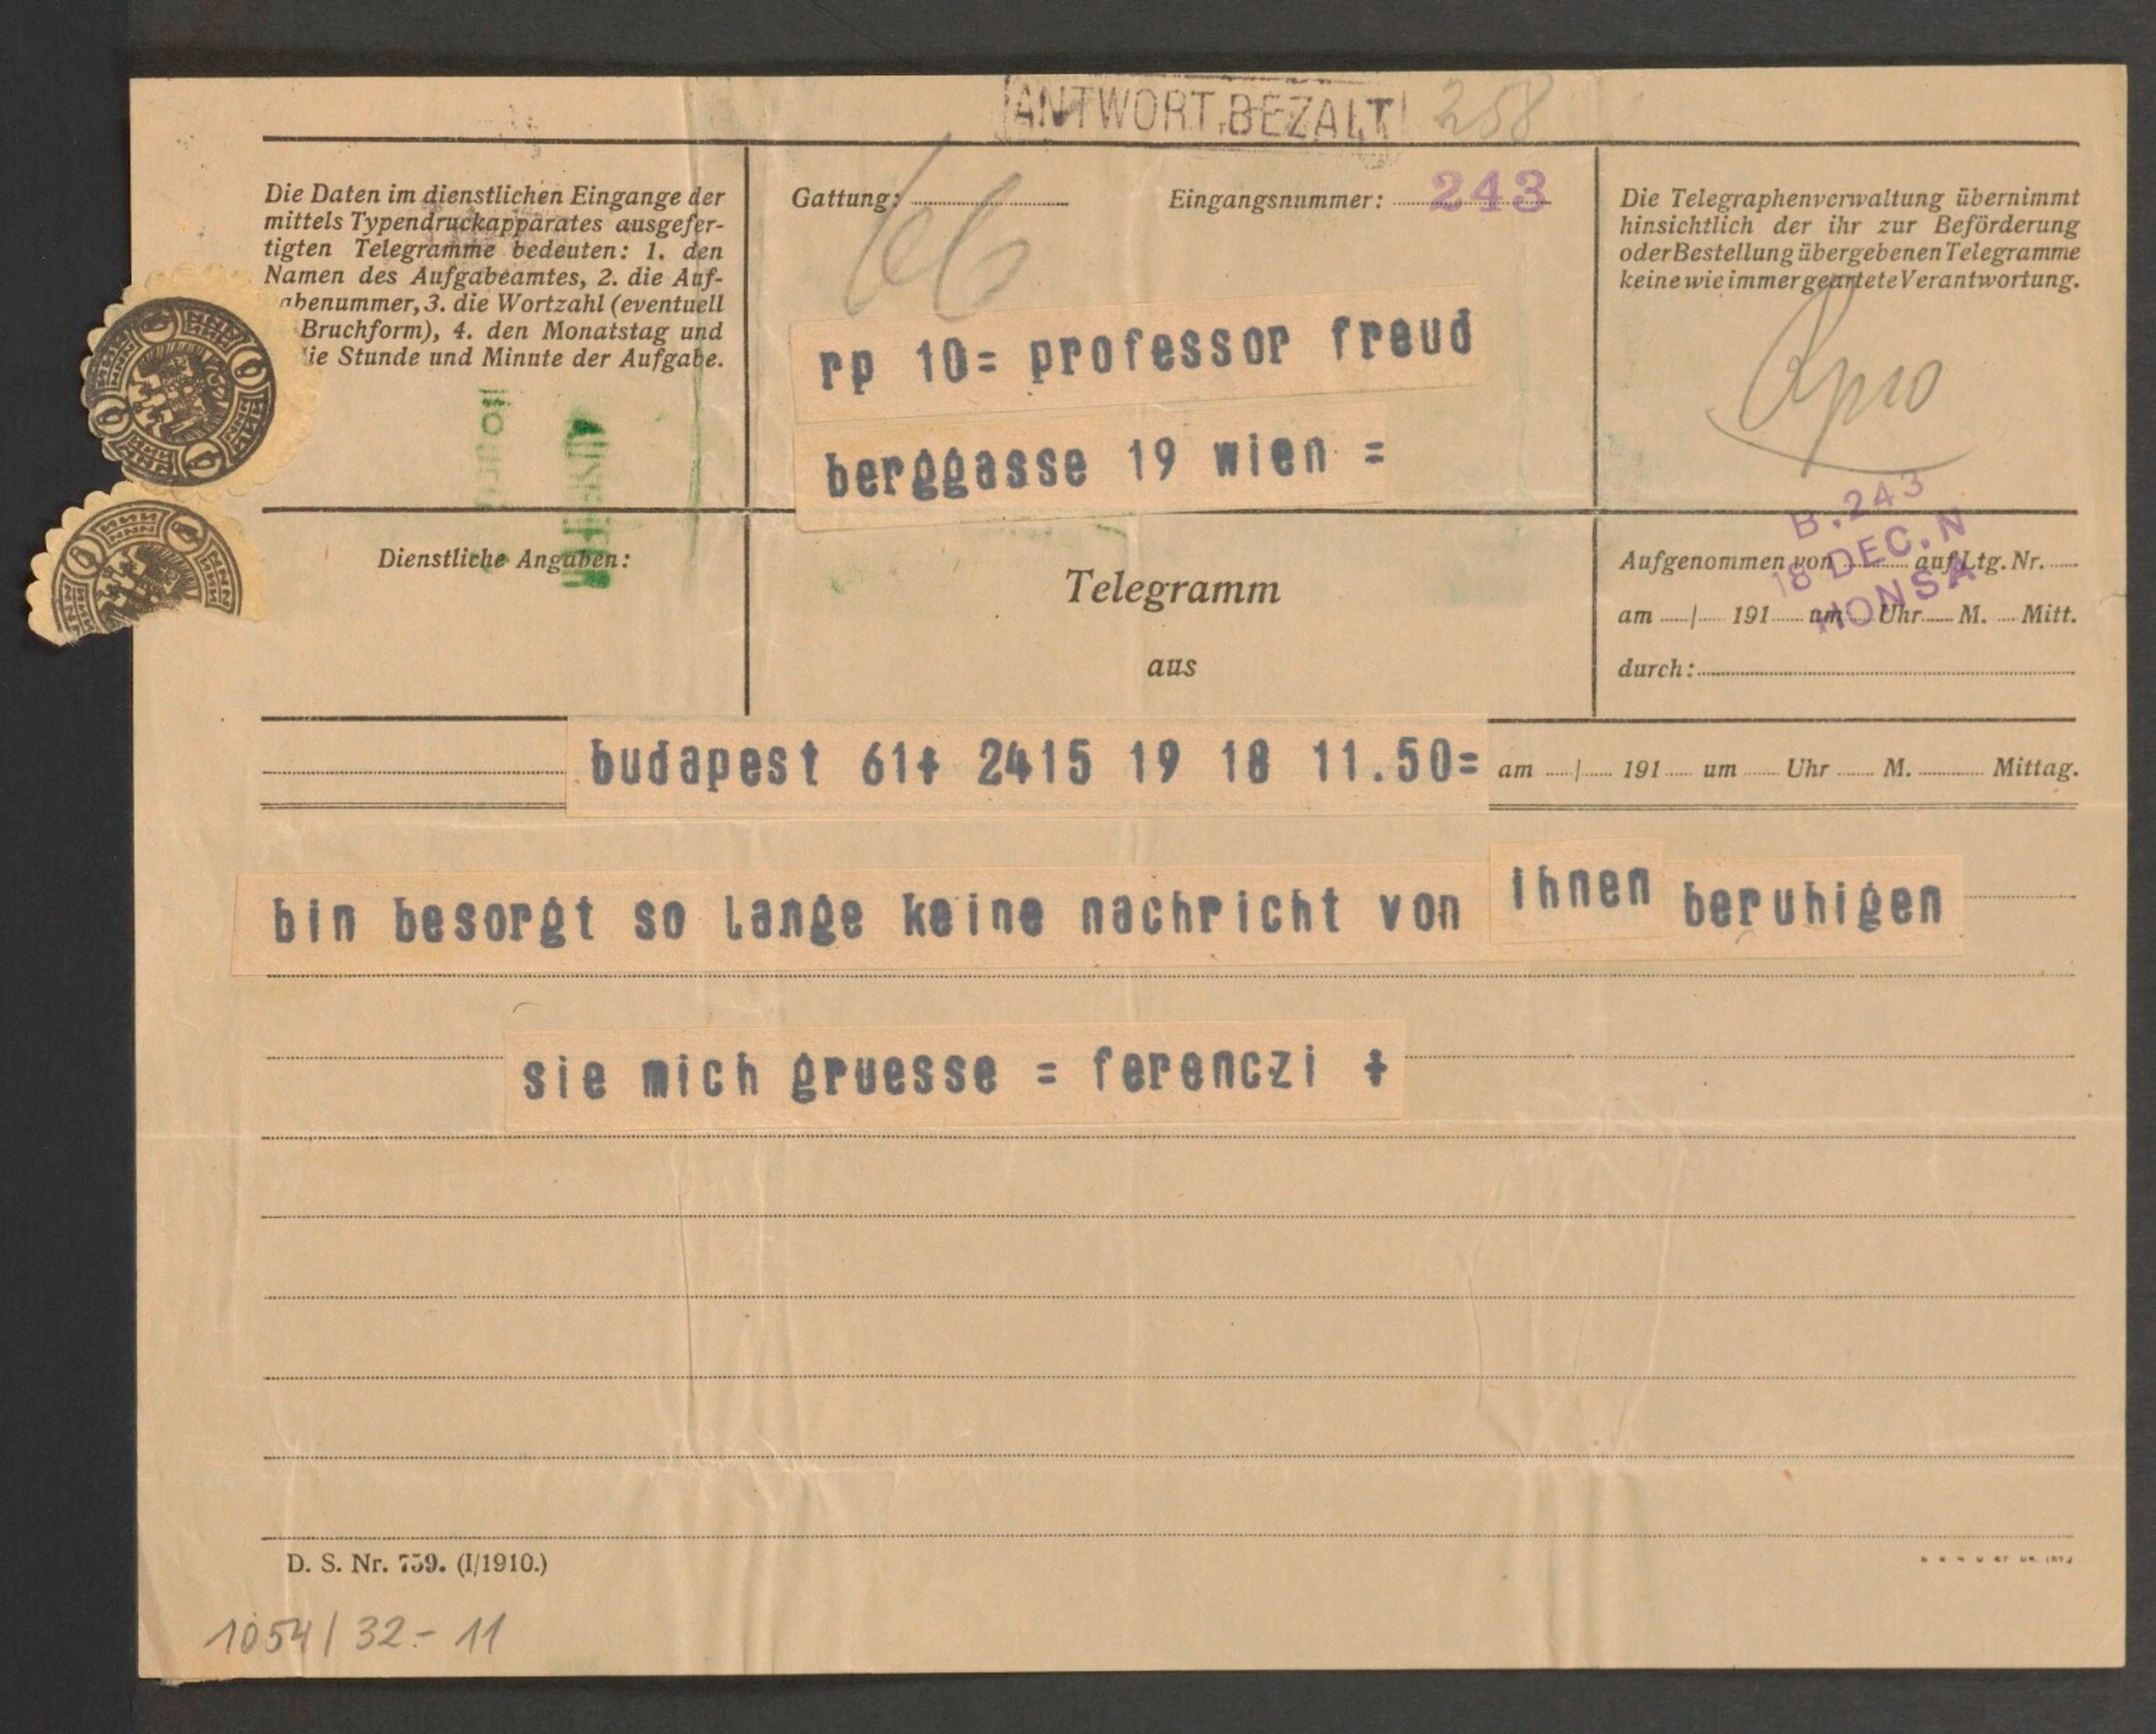 ANTWORT BEZALT 258
Die Daten im dienstlichen Eingange der
mittels Typendruckapparates ausgefer-
tigten Telegramme bedeuten: 1. den
Namen des Aufgabeamtes, 2. die Auf-
abenummer, 3. die Wortzahl (eventuell
Bruchform), 4. den Monatstag und
ie Stunde und Minute der Aufgabe.
Gattung:
Eingangsnummer: 243
Die Telegraphenverwaltung übernimmt
hinsichtlich der ihr zur Beförderung
oder Bestellung übergebenen Telegramme
keine wie immer geartete Verantwortung.
rp 10= professor freud
berggasse 19 wien =
B. 243
18 DEC. N
HONSA
Dienstliche Angaben:
Telegramm
aus
Aufgenommen von auf Ltg. Nr.
am / 191 um Uhr M. Mitt.
durch:
budapest 61+ 2415 19 18 11.50= am / 191 um Uhr M. Mittag.
bin besorgt so lange keine nachricht von ihnen beruhigen
sie mich gruesse = ferenczi +
D. S. Nr. 759. (I/1910.)
1054/32.- 11